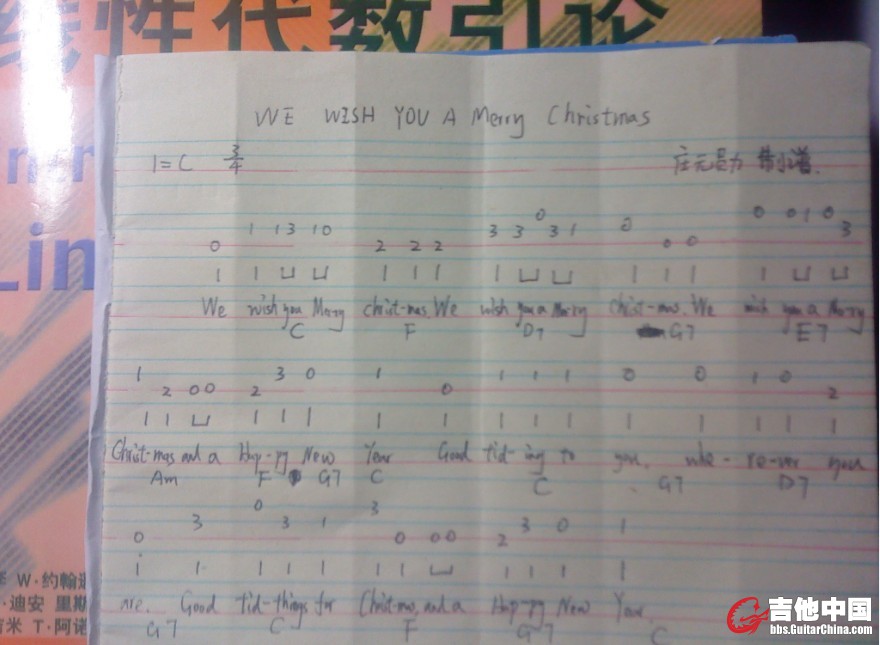 线性代数引论
WE WISH YOU A Merry Christmas
1=C 3/4
0 1 1 3 1 0 2 2 2 3 3 0 3 1 0 0 0 0 0 1 0 3
We wish you Merry christ-mas. We wish you a Merry christ-mas. We wish you a Merry
C F D7 G7 E7
1 2 0 0 2 3 0 1 0 1 1 1 0 0 1 0 2
Christ-mas and a Hap-py New Year Good tid-ing to you. whe-re-ver you
Am F G7 C C G7 D7
0 3 0 3 1 3 0 0 0 2 3 0 1
are. Good tid-things for Christ-mas, and a Hap-py New Year.
G7 C F G7 C
Lin
W·约翰逊
·迪安 里斯
米 T·阿诺
吉他中国
bbs.GuitarChina.com